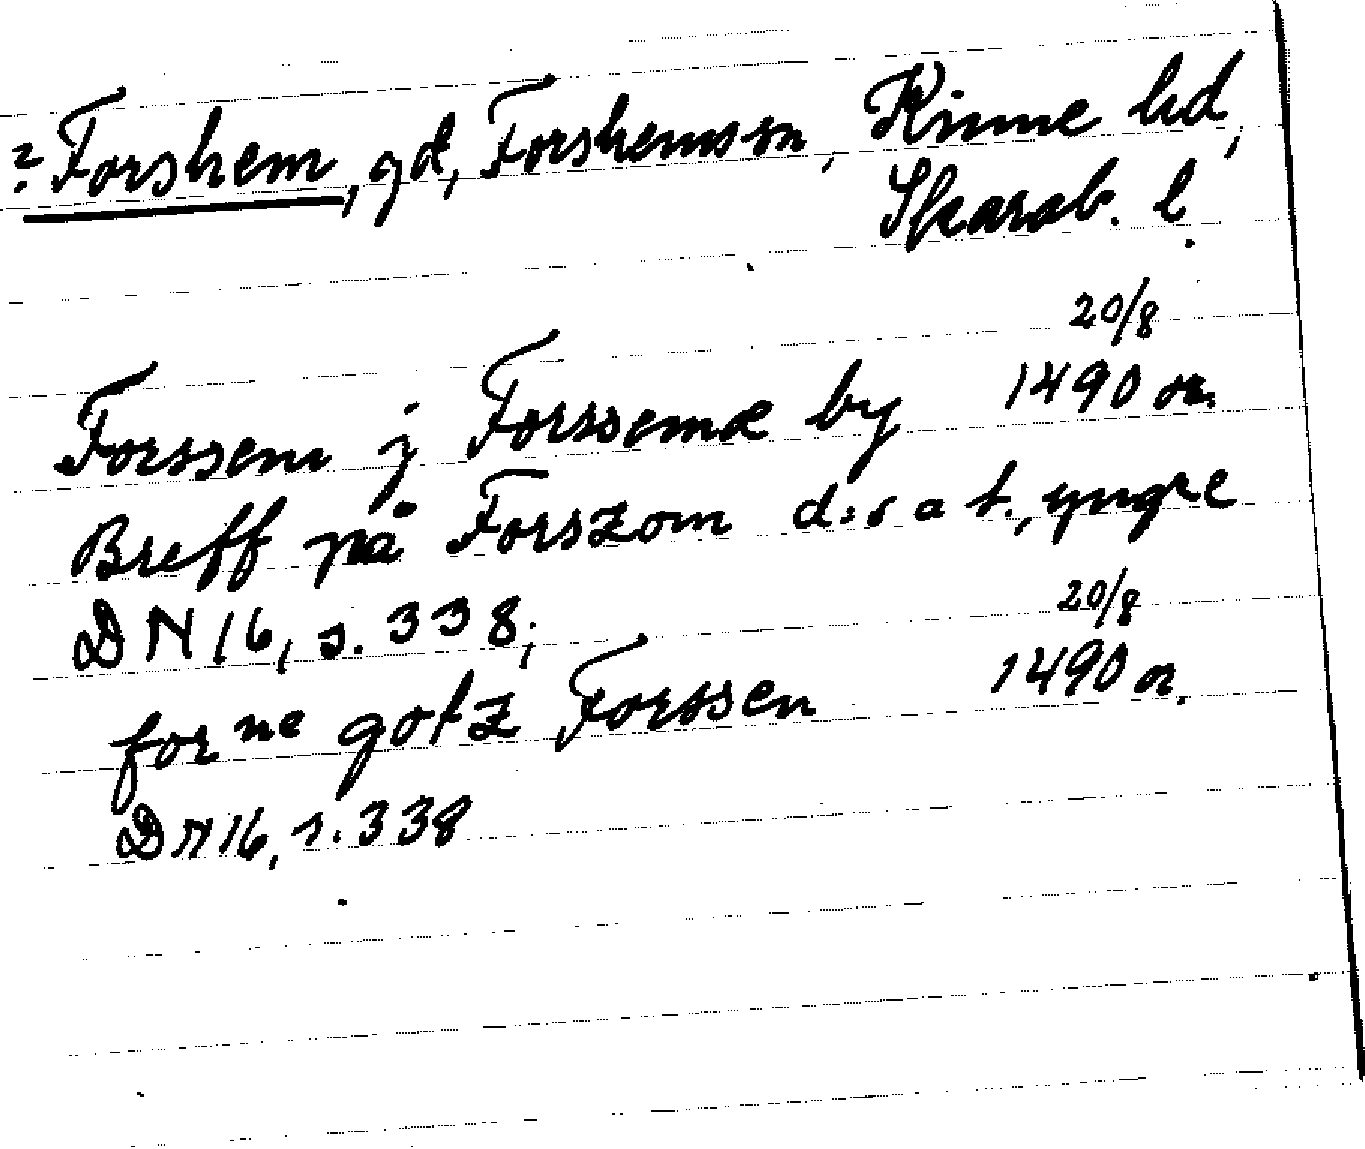 ? Forshem, gd, Forshems sn, Kinne hd,
Skarab. l.
20/8
Forssem j Forssemæ by 1490 or.
Breff på Forszom d:o a t., yngre
DN 16, s. 338;
20/8
for ne gotz Forssen 1490 or.
DN 16, s. 338